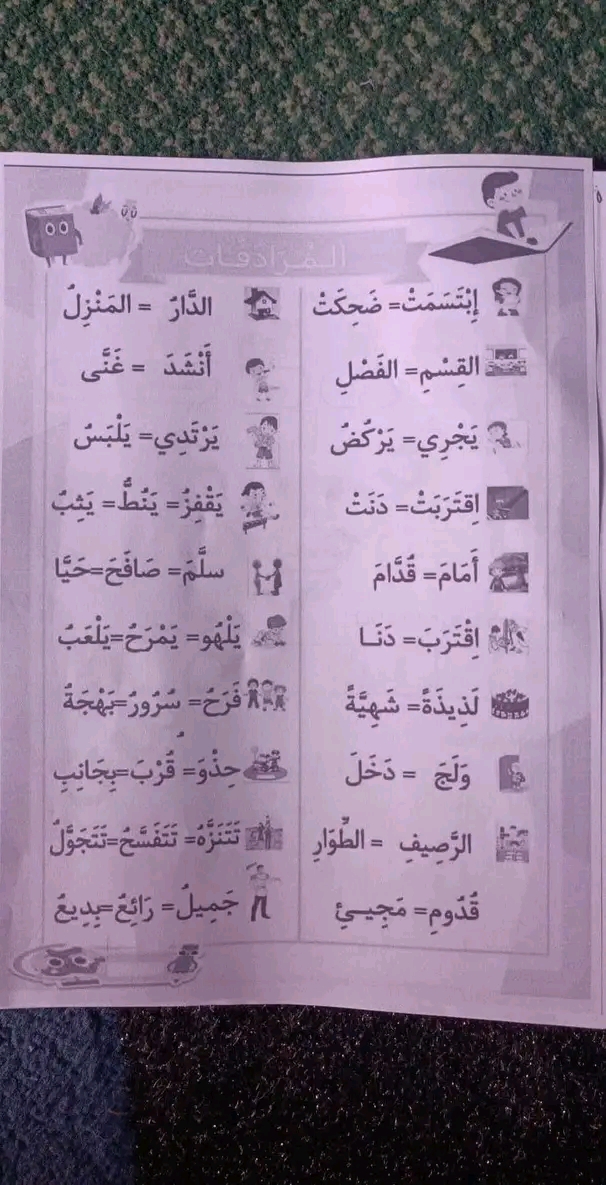 المُرَادَفَات
إِبْتَسَمَتْ= ضَحِكَتْ
القِسْمِ= الفَصْلِ
يَجْرِي= يَرْكُضُ
اِقتَرَبَتْ= دَنَتْ
أَمَامَ= قُدَّامَ
اِقْتَرَبَ= دَنَا
لَذِيذَةً= شَهِيَّةً
وَلَجَ = دَخَلَ
الرَّصِيفِ = الطِّوَارِ
قُدُومِ= مَجِيئِ
الدَّارُ = المَنْزِلُ
أَنْشَدَ = غَنَّى
يَرْتَدِي= يَلْبَسُ
يَقْفِزُ= يَنُطُّ= يَثِبُ
سلَّمَ= صَافَحَ=حَيَّا
يَلْهُو= يَمْرَحُ=يَلْعَبُ
فَرَحُ= سُرُورُ=بَهْجَةُ
حِذْوَ= قُرْبَ=بِجَانِبِ
تَتَنَزَّهُ= تَتَفَسَّحُ=تَتَجَوَّلُ
جَمِيلُ= رَائِعُ=بِدِيعُ